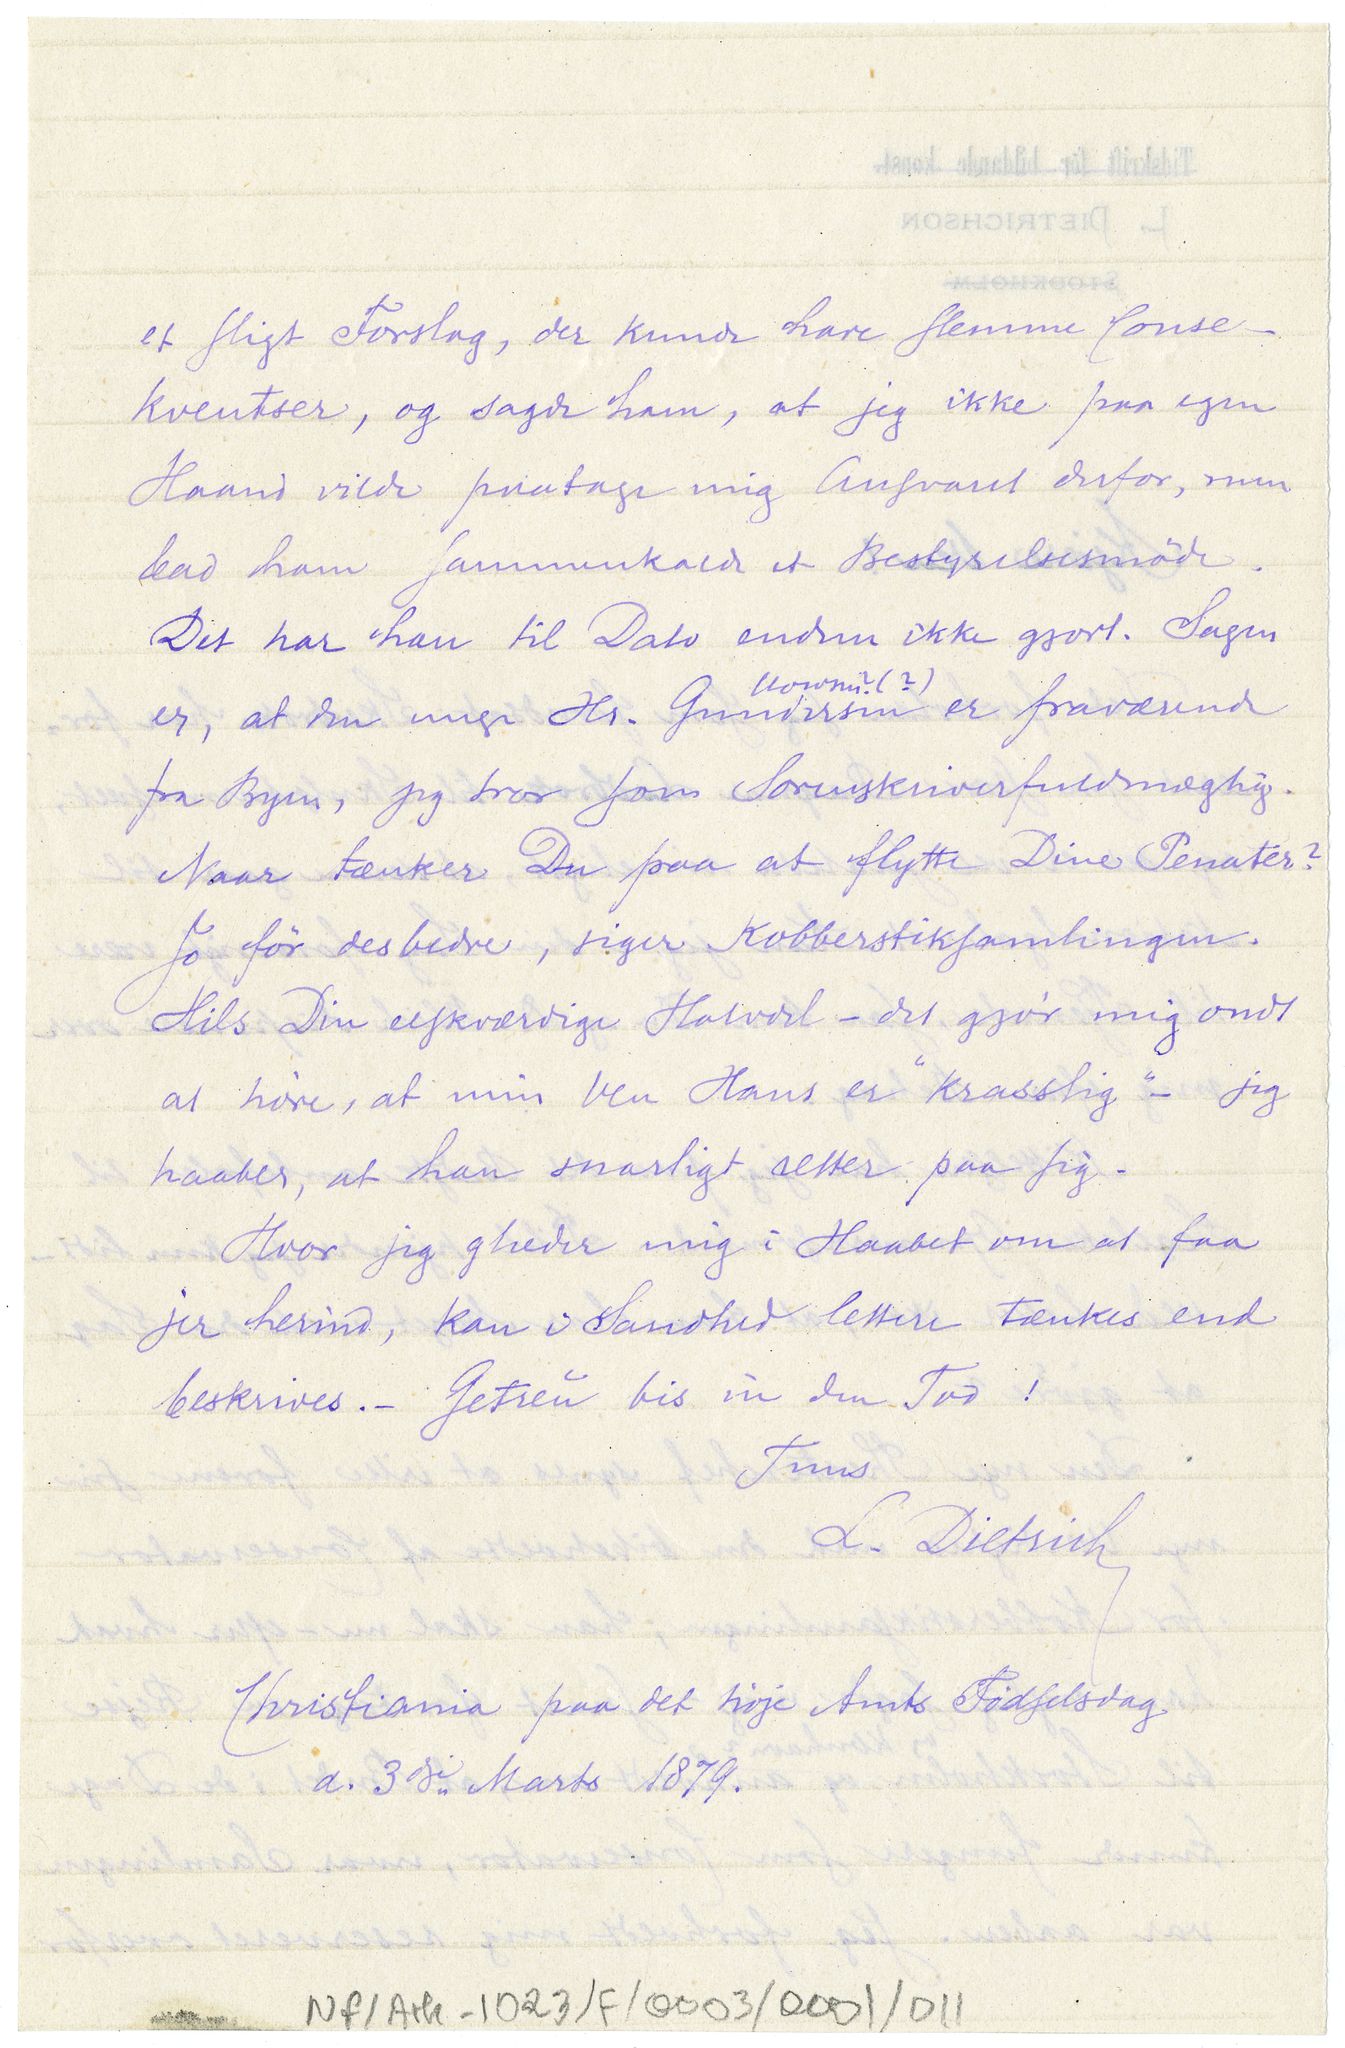 et sligt Forslag, der kunde have slemme Conse-
kventser, og sagde ham, at jeg ikke paa egen
Haand vilde paatage mig Ansvaret derfor, men
bad ham sammenkalde et Bestyrelsesmöde.
Det har han til Dato endnu ikke gjort. Sagen
er, at den unge Hr. Gundersen er fraværende
fra Byen, jeg tror som Sorenskriverfuldmægtig.
Naar tænker Du paa at flytte Dine Penater?
Jo för desbedre, siger Kobberstiksamlingen.
Hils Din elskværdige Halvdel - det gjör mig ondt
at höre, at min Ven Hans er "krasslig" - jeg
haaber, at han snarligt retter paa sig.
Hvor jeg gleder mig i Haabet om at faa
jer herind, kan i Sandhed lettere tænkes end
beskrives. - Getreü bis in den Tod!
Tuus
L. Dietrich
Christiania paa det höje Amts Födselsdag
d. 3die Marts 1879.
Nf/Ark-1023/F/0003/0001/011